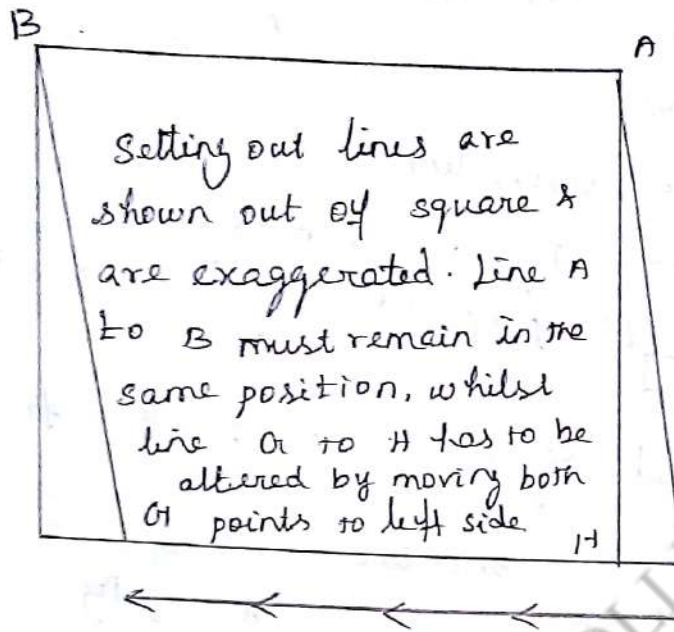 B
A
Setting out lines are
shown out of square &
are exaggerated. Line A
to B must remain in the
same position, whilst
line G to H has to be
altered by moving both
G points to left side
H